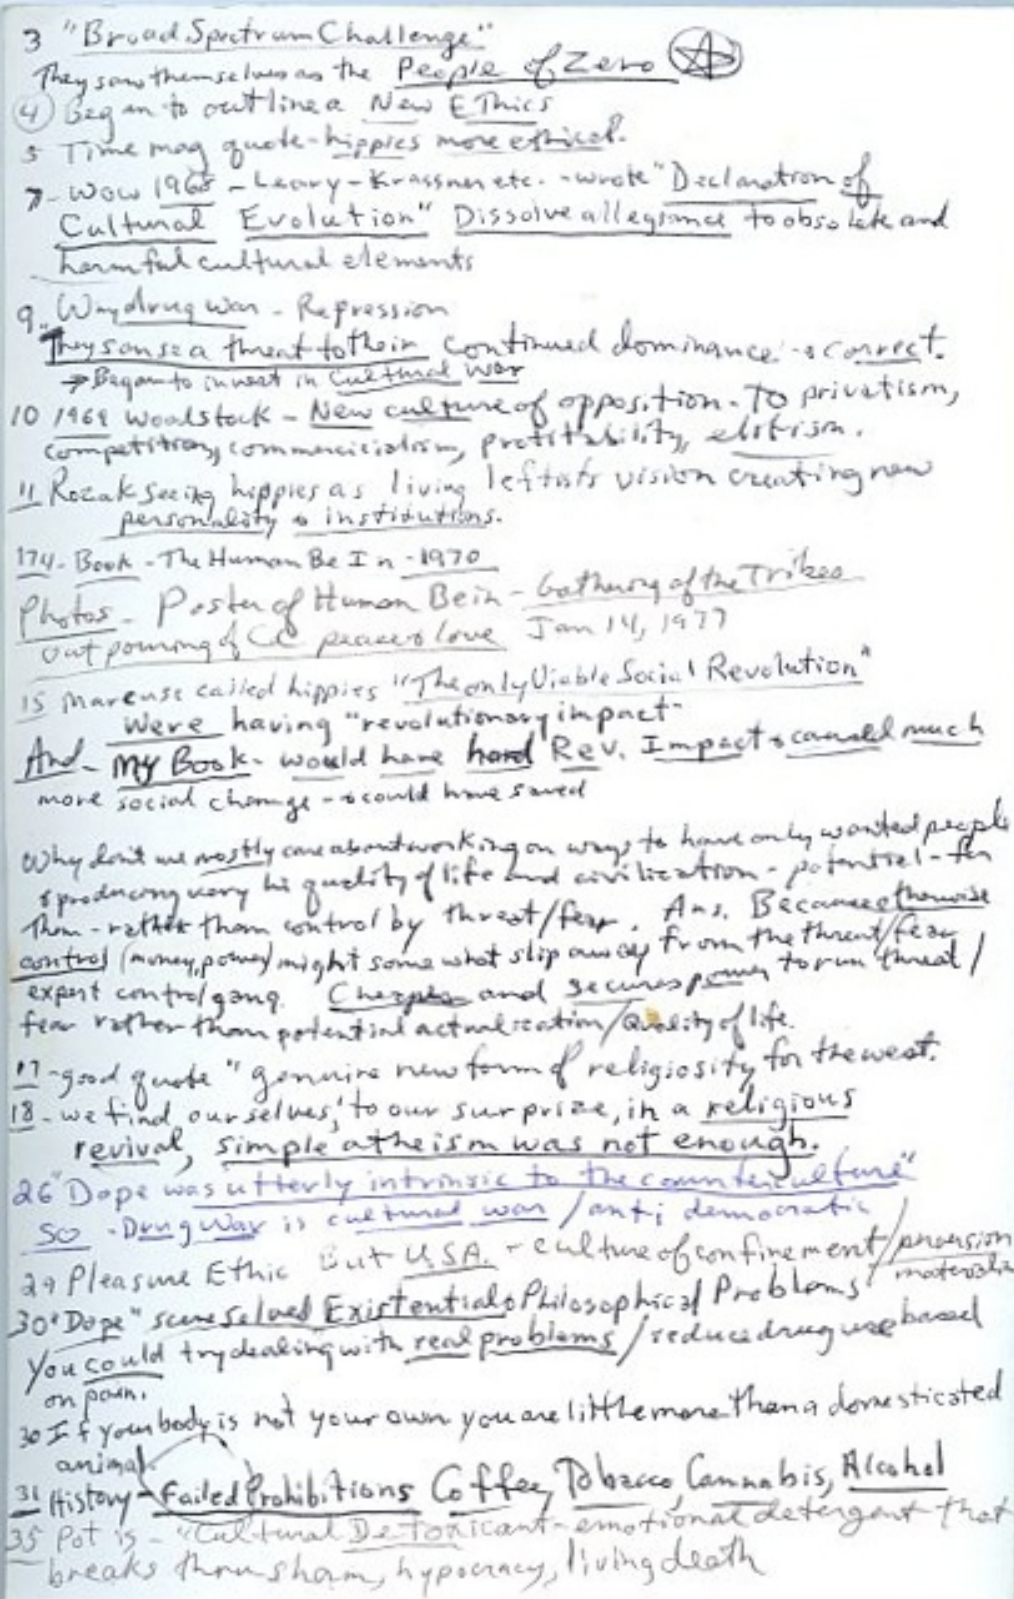 3 "Broad Spectrum Challenge"
They saw themselves as the People of Zero
4 Began to outline a New Ethics
5 Time mag quote - hippies more ethical.
7 - Wow 1968 - Leary - Krassner etc. - wrote "Declaration of
Cultural Evolution" Dissolve allegiance to obsolete and
harmful cultural elements
9. Why drug war - Repression
They sense a threat to their continued dominance - & correct.
→ Began to invest in Cultural War
10 1969 Woodstock - New culture of opposition - To privatism,
competition, commercialism, profitability, elitism.
11 Rozak seeing hippies as living leftists vision creating new
personality & institutions.
174 - Book - The Human Be In - 1970
Photos - Poster of Human Bein - Gathering of the Tribes
out pouring of CC peace & love Jan 14, 1977
15 Marcuse called hippies "The only Viable Social Revolution"
Were having "revolutionary impact"
And - My Book - would have had Rev. Impact & caused much
more social change - & could have saved
Why don't we mostly care about working on ways to have only wanted people
& producing very hi quality of life and civilization - potential - for
them - rather than control by threat/fear. Ans. Because otherwise
control (money, power) might some what slip away from the threat/fear
expert control gang. Cheaper and secures power to run threat/
fear rather than potential actualization/Quality of life.
17 - good quote "genuine new form of religiosity for the west.
18 - we find ourselves, to our surprize, in a religious
revival, simple atheism was not enough.
26 "Dope was utterly intrinsic to the counterculture"
so - Drug War is cultural war / anti democratic
29 Pleasure Ethic But USA. - culture of confinement/
30 "Dope" scene solved Existential & Philosophical Problems
You could try dealing with real problems / reduce drug use based
on pain.
30 If your body is not your own you are little more than a domesticated
animal
31 History - Failed Prohibitions Coffee, Tobacco, Cannabis, Alcohol
35 Pot is - "Cultural DeToxicant - emotional detergent that
breaks thru sham, hypocracy, living death